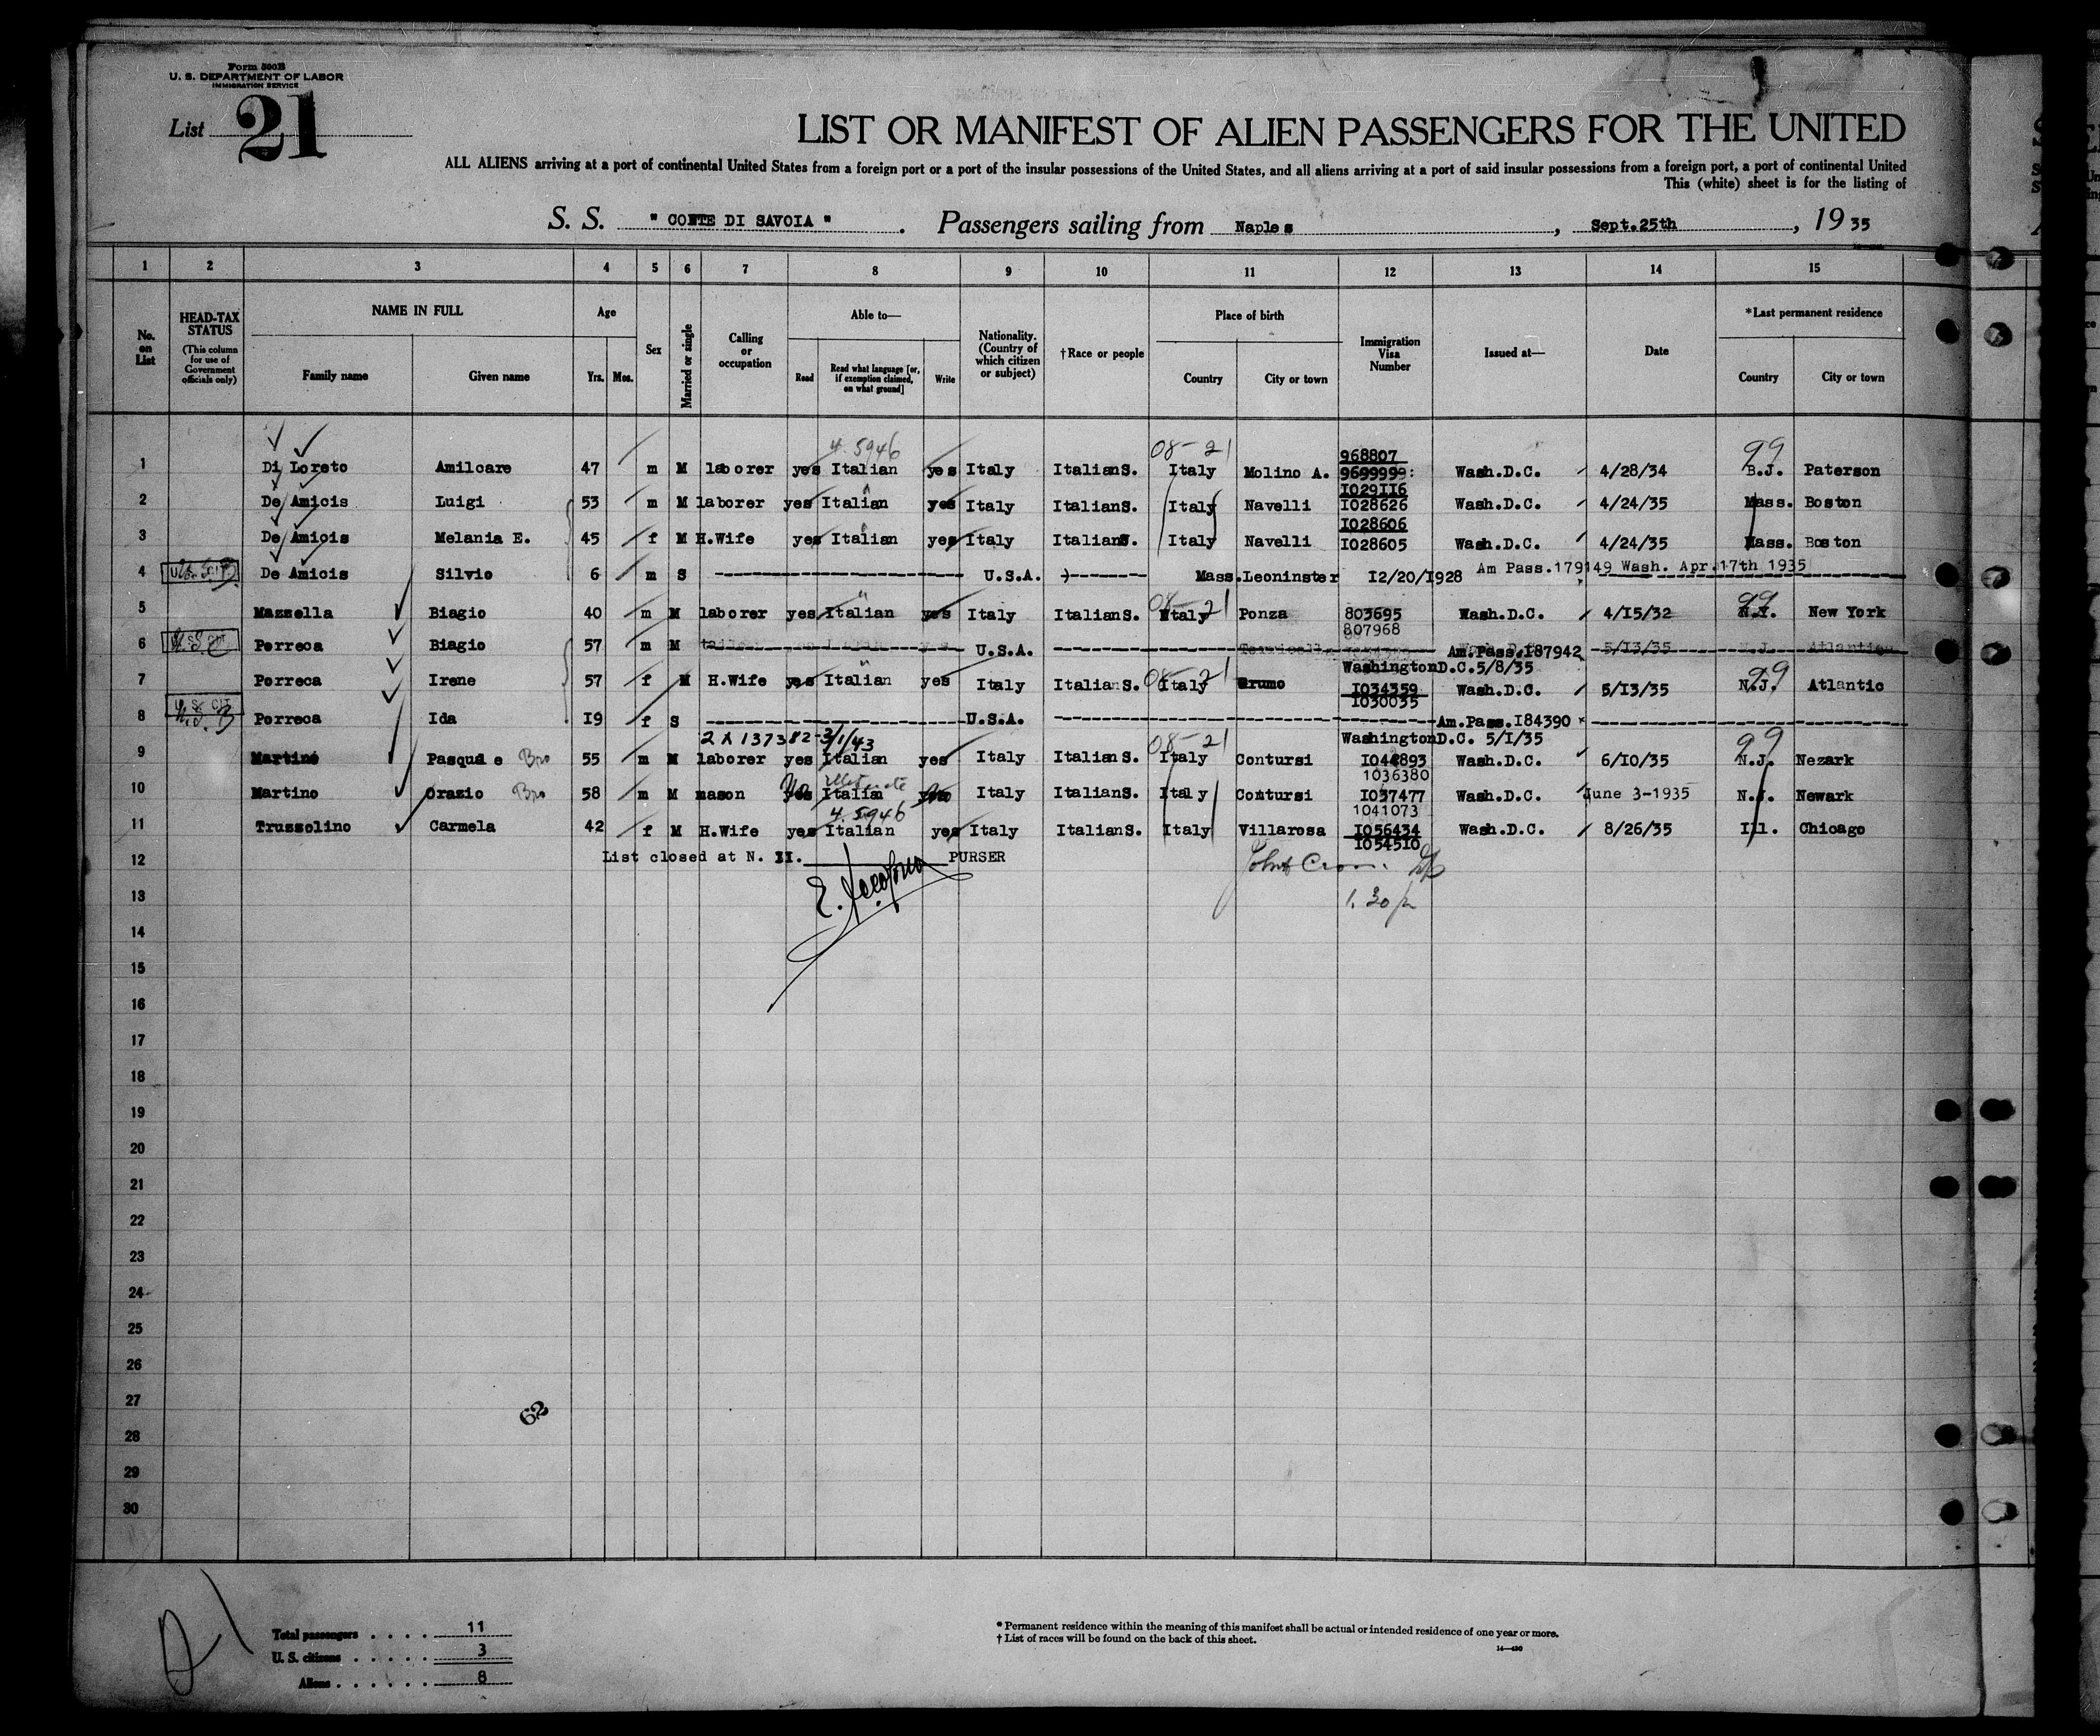 Form 500B
U. S. DEPARTMENT OF LABOR
IMMIGRATION SERVICE
List 21
LIST OR MANIFEST OF ALIEN PASSENGERS FOR THE UNITED
ALL ALIENS arriving at a port of continental United States from a foreign port or a port of the insular possessions of the United States, and all aliens arriving at a port of said insular possessions from a foreign port, a port of continental United
This (white) sheet is for the listing of
S. S. " CONTE DI SAVOIA ". Passengers sailing from Naples, Sept.25th, 1935
1 2 3 4 5 6 7 8 9 10 11 12 13 14 15
No. on List
HEAD-TAX STATUS (This column for use of Government officials only)
NAME IN FULL
Family name Given name
Age
Yrs. Mos.
Sex
Married or single
Calling or occupation
Able to—
Read Read what language [or, if exemption claimed, on what ground] Write
Nationality. (Country of which citizen or subject)
†Race or people
Place of birth
Country City or town
Immigration Visa Number
Issued at—
Date
*Last permanent residence
Country City or town
4.5946 08-21 968807 99
1 Di Loreto Amilcare 47 m M laborer yes Italian yes Italy Italian S. Italy Molino A. 9699999: Wash.D.C. 4/28/34 B.J. Paterson
I029II6
2 De Amicis Luigi 53 m M laborer yes Italian yes Italy Italian S. Italy Navelli I028626 Wash.D.C. 4/24/35 Mass. Boston
I028606
3 De Amicis Melania E. 45 f M H.Wife yes Italian yes Italy Italian S. Italy Navelli I028605 Wash.D.C. 4/24/35 Mass. Boston
4 U.S. CIT De Amicis Silvio 6 m S U.S.A. Mass. Leoninster I2/20/I928 Am Pass.179149 Wash. Apr.17th 1935
08-21 99
5 Mazzella Biagio 40 m M laborer yes Italian yes Italy Italian S. Italy Ponza 803695 Wash.D.C. 4/15/32 N.Y. New York
807968
6 U.S. CIT Porreca Biagio 57 m M U.S.A. Am.Pass.I87942 5/13/35 N.J. Atlantic
WashingtonD.C.5/8/35
08-21 99
7 Porreca Irene 57 f M H.Wife yes Italian yes Italy Italian S. Italy Grumo I034359 Wash.D.C. 5/13/35 N.J. Atlantic
I030035
8 U.S. CIT Porreca Ida I9 f S U.S.A. Am.Pass.I84390
2 X 137382-3/1/43 08-21 WashingtonD.C. 5/I/35 99
9 Martino Pasquale Bro 55 m M laborer yes Italian yes Italy Italian S. Italy Contursi I044893 Wash.D.C. 6/10/35 N.J. Nezark
1036380
10 Martino Orazio Bro 58 m M mason yes Italian yes Italy Italian S. Italy Contursi I037477 Wash.D.C. June 3-1935 N.J. Newark
4.5946 1041073
11 Trussolino Carmela 42 f M H.Wife yes Italian yes Italy Italian S. Italy Villarosa I056434 Wash.D.C. 8/26/35 Ill. Chicago
I054510
12 List closed at N. II. PURSER
13 1.30 p
14
15
16
17
18
19
20
21
22
23
24
25
26
27
62
28
29
30
Total passengers . . . . 11
U. S. citizens . . . . . 3
Aliens . . . . . . 8
* Permanent residence within the meaning of this manifest shall be actual or intended residence of one year or more.
† List of races will be found on the back of this sheet.
14—430